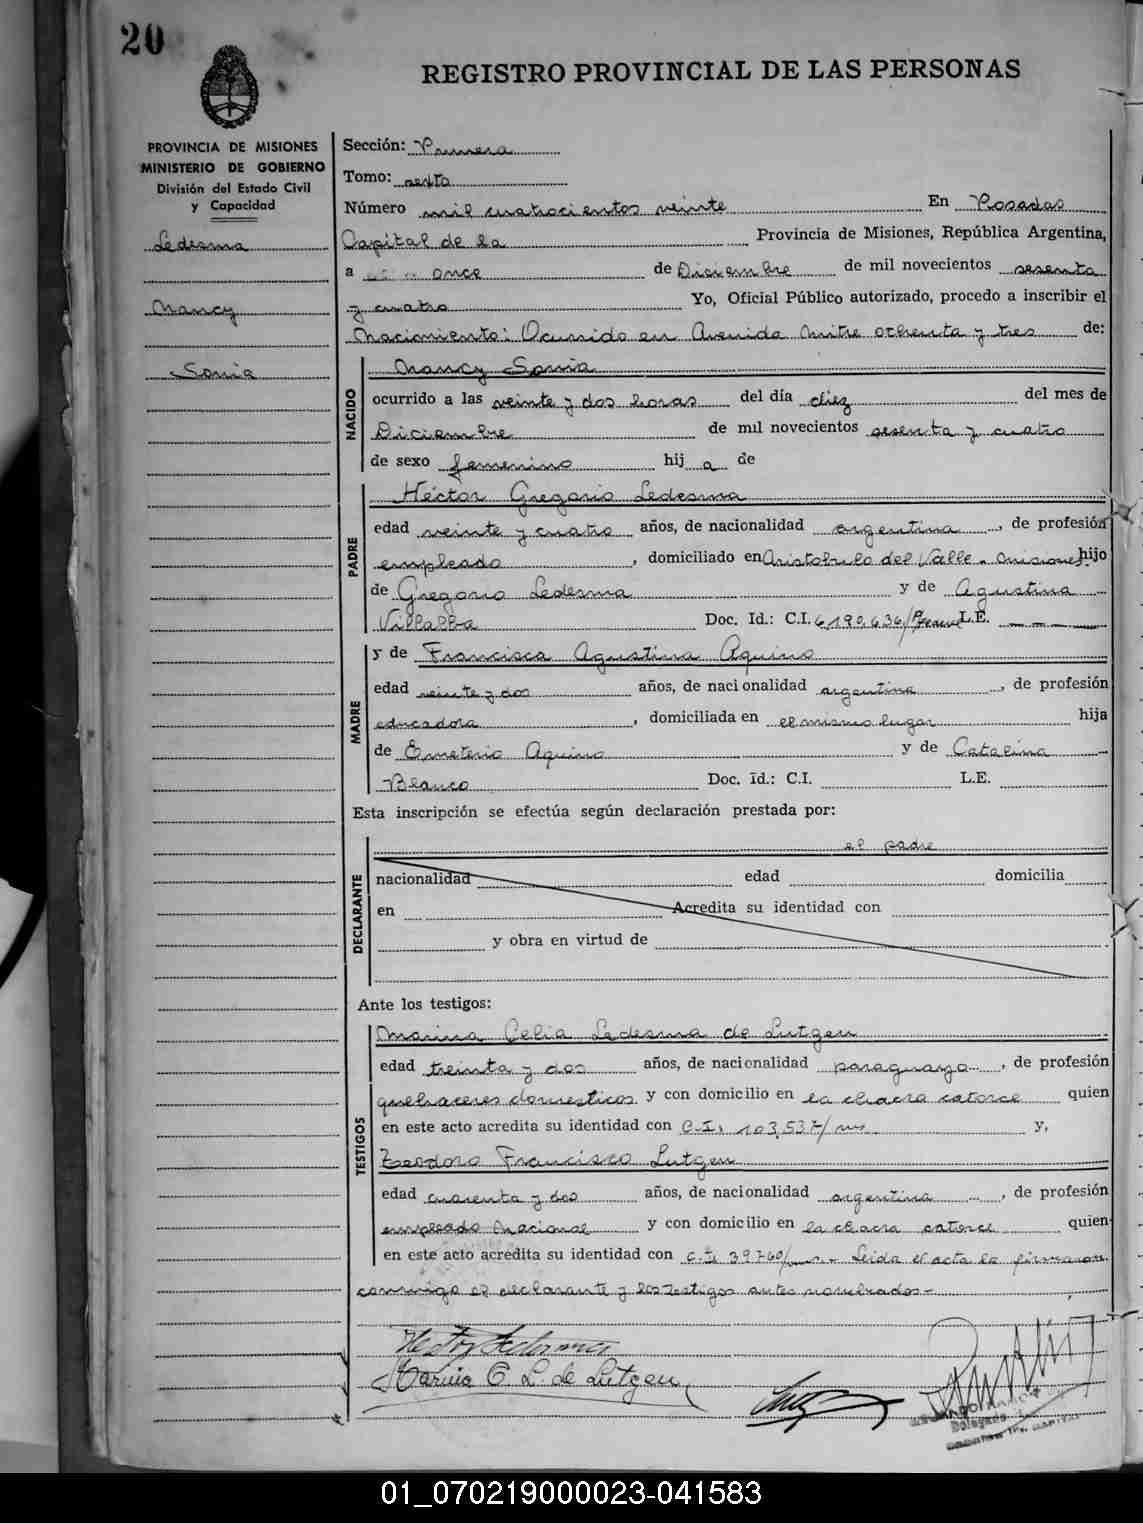 20
REGISTRO PROVINCIAL DE LAS PERSONAS
PROVINCIA DE MISIONES
MINISTERIO DE GOBIERNO
División del Estado Civil
y Capacidad
Ledesma
Nancy
Sonia
Sección: Primera
Tomo: sexto
Número mil cuatrocientos veinte En Posadas
Capital de la Provincia de Misiones, República Argentina,
a once de Diciembre de mil novecientos sesenta
y cuatro Yo, Oficial Público autorizado, procedo a inscribir el
Nacimiento: Ocurrido en Avenida Mitre ochenta y tres de:
NACIDO
Nancy Sonia
ocurrido a las veinte y dos horas del día diez del mes de
Diciembre de mil novecientos sesenta y cuatro
de sexo femenino hij a de
PADRE
Héctor Gregorio Ledesma
edad veinte y cuatro años, de nacionalidad argentina, de profesión
empleado, domiciliado en Aristóbulo del Valle. Misiones hijo
de Gregorio Ledesma y de Agustina
Villalba Doc. Id.: C.I. 6.190.636/ L.E. — — —
MADRE
y de Francisca Agustina Aquino
edad veinte y dos años, de nacionalidad argentina, de profesión
educadora, domiciliada en el mismo lugar hija
de Emeterio Aquino y de Catalina
Blanco Doc. Id.: C.I. L.E.
Esta inscripción se efectúa según declaración prestada por:
DECLARANTE
el padre
nacionalidad edad domicilia
en Acredita su identidad con
y obra en virtud de
Ante los testigos:
TESTIGOS
Marina Celia Ledesma de Lutgen
edad treinta y dos años, de nacionalidad paraguaya, de profesión
quehaceres domesticos y con domicilio en la chacra catorce quien
en este acto acredita su identidad con C.I. 103.537/ms y,
Teodoro Francisco Lutgen
edad cuarenta y dos años, de nacionalidad argentina, de profesión
empleado Nacional y con domicilio en la chacra catorce quien
en este acto acredita su identidad con C.I. 39760/ms.- Leida el acta la firmaron
conmigo el declarante y los testigos antes nombrados-
Hector Ledesma
Marina C. L. de Lutgen
Delegado
01_070219000023-041583